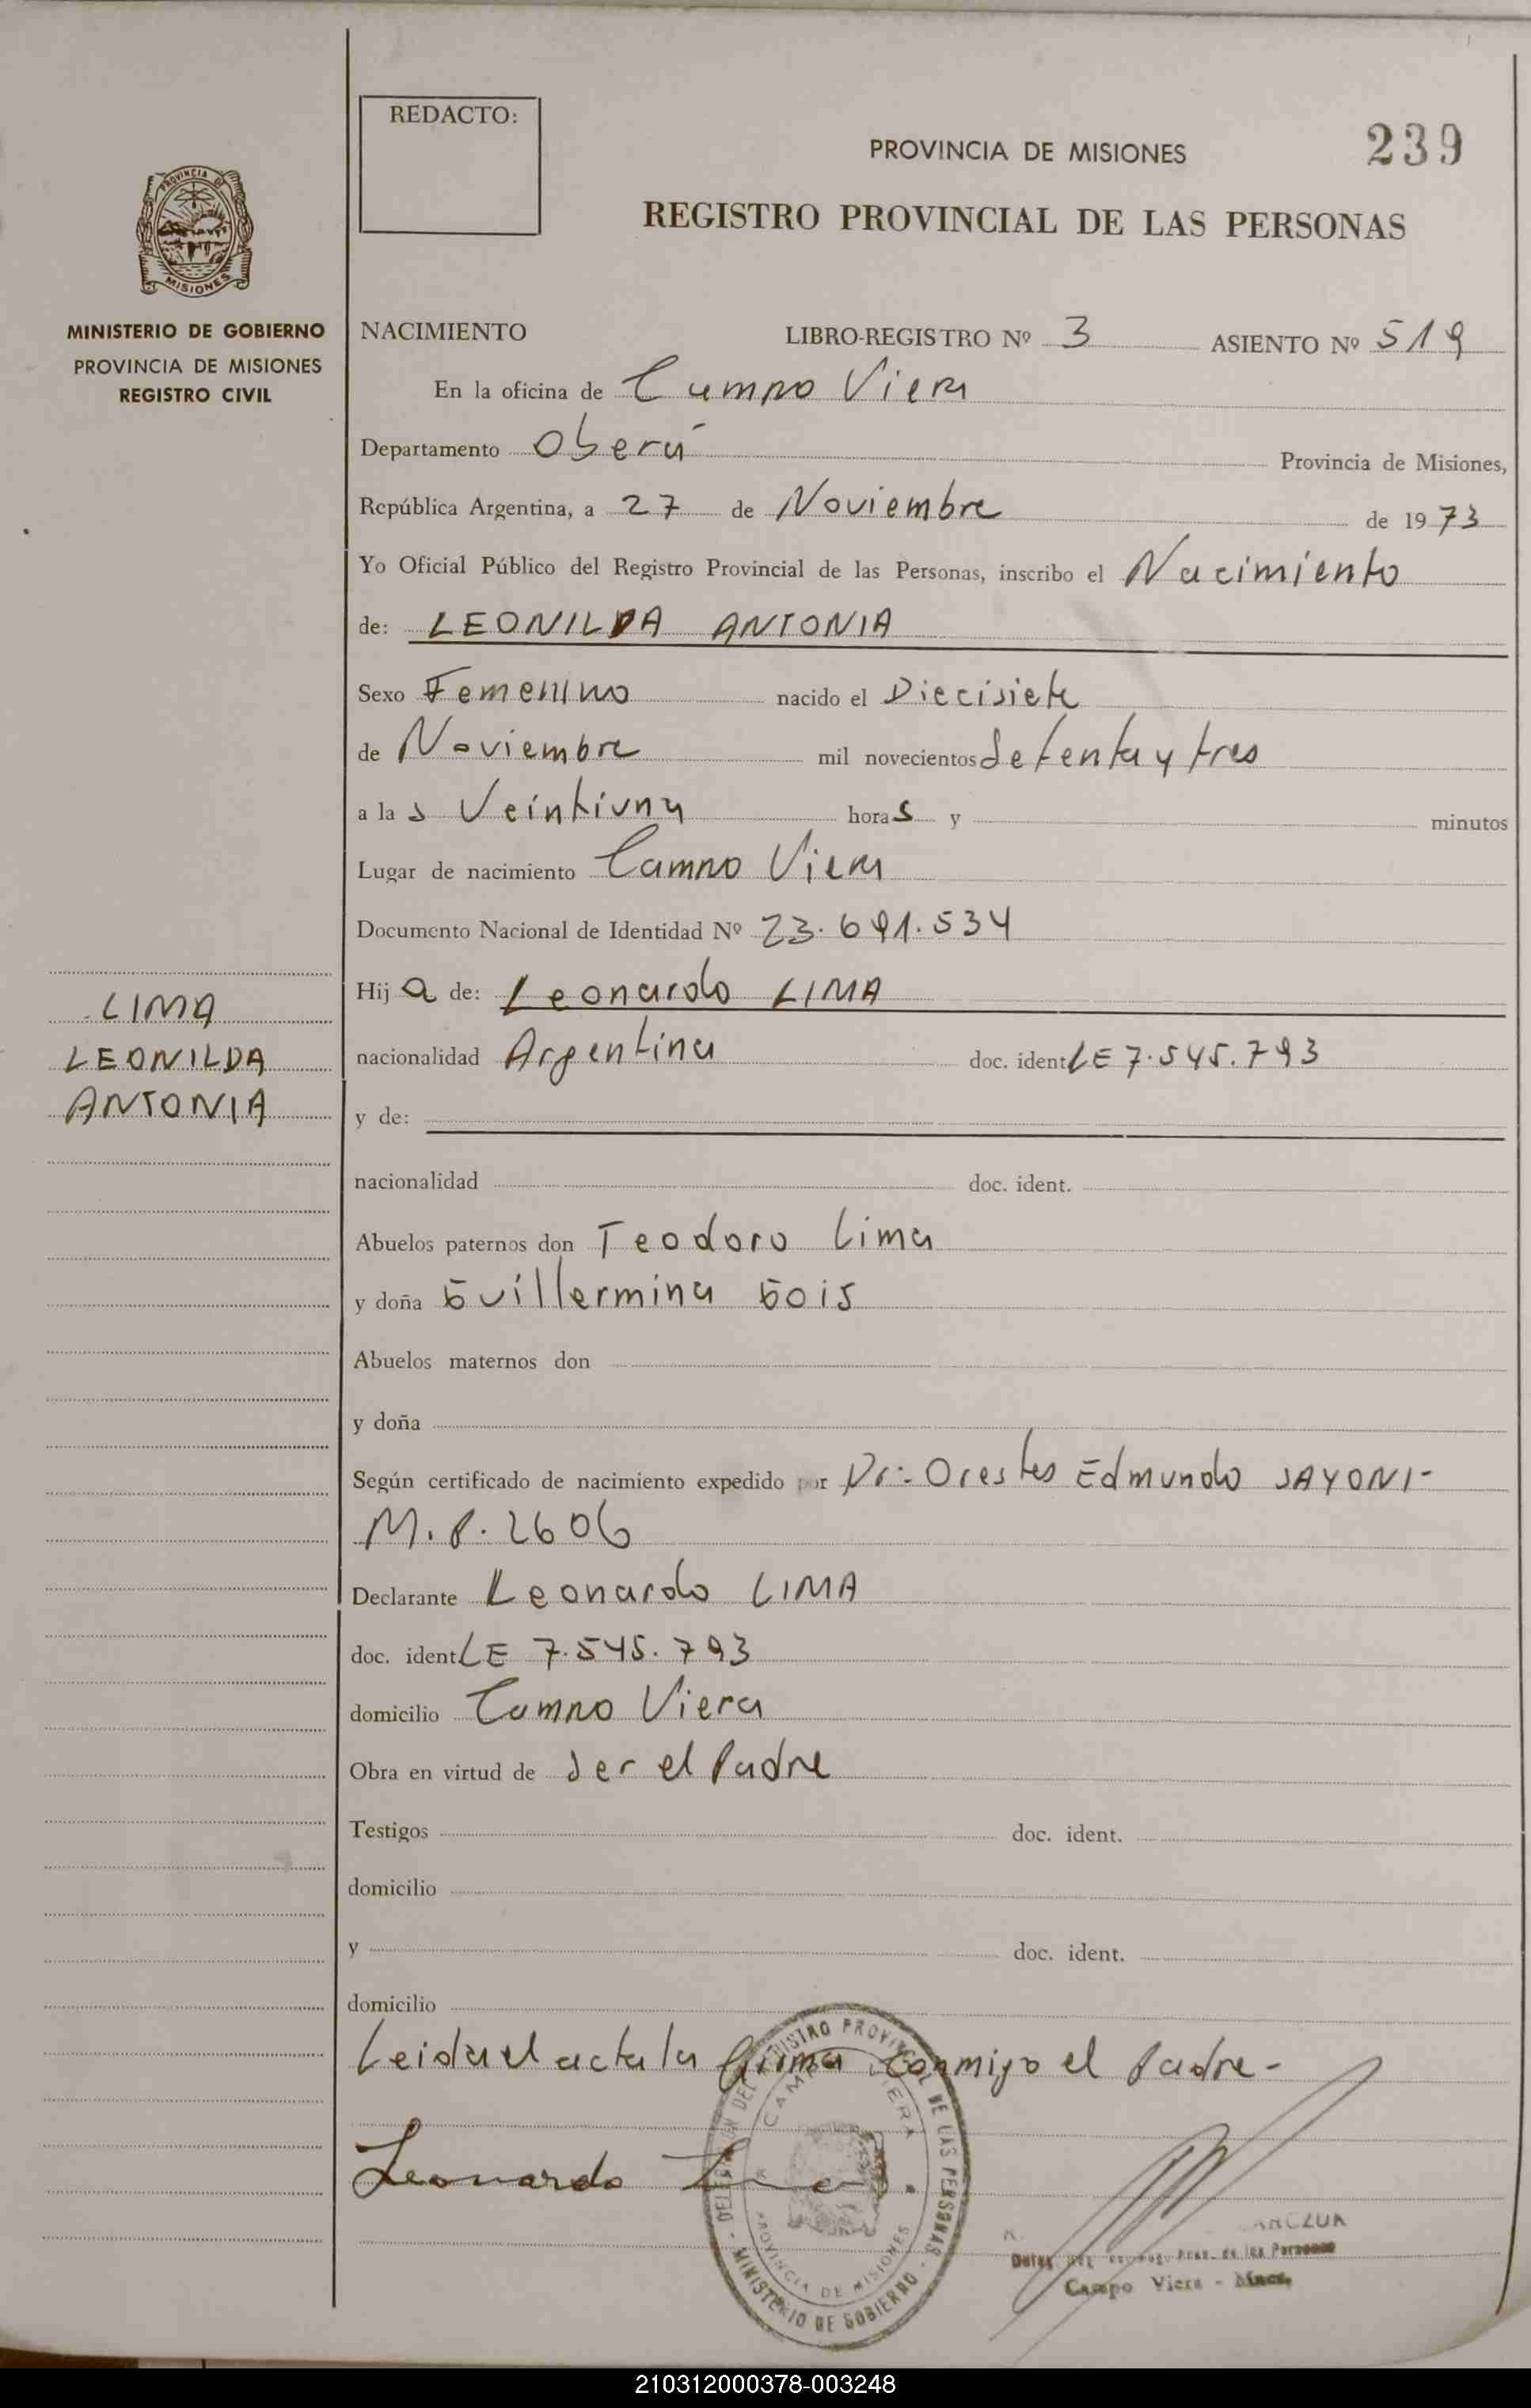 REDACTO:
PROVINCIA DE MISIONES
239
REGISTRO PROVINCIAL DE LAS PERSONAS
PROVINCIA DE
MISIONES
MINISTERIO DE GOBIERNO
PROVINCIA DE MISIONES
REGISTRO CIVIL
NACIMIENTO LIBRO-REGISTRO Nº 3 ASIENTO Nº 519
En la oficina de Campo Viera
Departamento Oberá Provincia de Misiones,
República Argentina, a 27 de Noviembre de 1973
Yo Oficial Público del Registro Provincial de las Personas, inscribo el Nacimiento
de: LEONILDA ANTONIA
Sexo Femenino nacido el Diecisiete
de Noviembre mil novecientos setenta y tres
a las Veintiuna horas y minutos
Lugar de nacimiento Campo Viera
Documento Nacional de Identidad Nº 23.691.534
LIMA
LEONILDA
ANTONIA
Hija de: Leonardo LIMA
nacionalidad Argentina doc. ident LE 7.545.793
y de:
nacionalidad doc. ident.
Abuelos paternos don Teodoro Lima
y doña Guillermina Gois
Abuelos maternos don
y doña
Según certificado de nacimiento expedido por Dr:- Orestes Edmundo SAYONI-
M.P. 2606
Declarante Leonardo LIMA
doc. ident LE 7.545.793
domicilio Campo Viera
Obra en virtud de ser el Padre
Testigos doc. ident.
domicilio
y doc. ident.
domicilio
Leida el acta la firma conmigo el Padre-
Leonardo Lima
DELEGACION DEL REGISTRO PROVINCIAL DE LAS PERSONAS - MINISTERIO DE GOBIERNO -
CAMPO VIERA
PROVINCIA DE MISIONES
de las Personas
Campo Viera - Mnes.
210312000378-003248